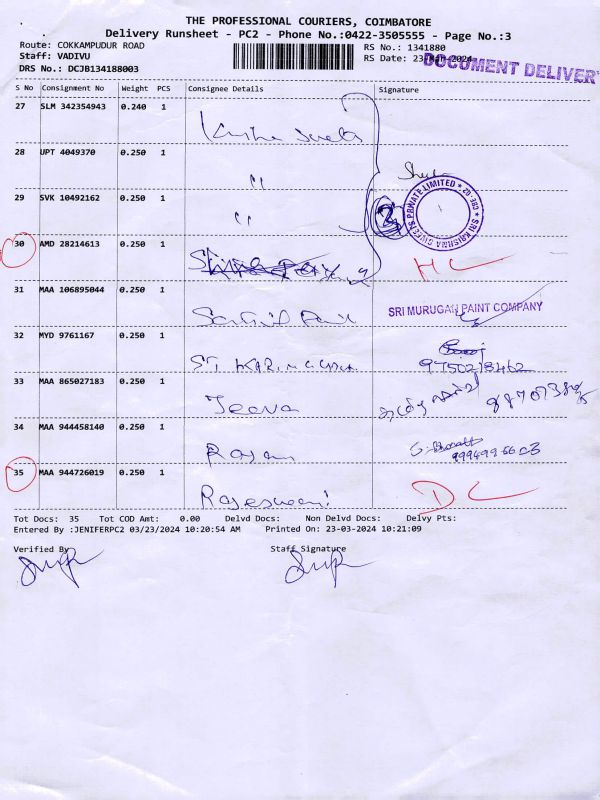 THE PROFESSIONAL COURIERS, COIMBATORE
Delivery Runsheet - PC2 - Phone No.:0422-3505555 - Page No.:3
Route: COKKAMPUDUR ROAD
Staff: VADIVU
DRS No.: DCJB134188003
RS No.: 1341880
RS Date: 23-Mar-2024
DOCUMENT DELIVER
S No Consignment No Weight PCS Consignee Details Signature
27 SLM 342354943 0.240 1
28 UPT 4049370 0.250 1 "
29 SVK 10492162 0.250 1 "
2
SRI KRISHNA SWEETS PRIVATE LIMITED * CBE-02 *
30 AMD 28214613 0.250 1
31 MAA 106895044 0.250 1 SRI MURUGAN PAINT COMPANY
32 MYD 9761167 0.250 1 9750213462
33 MAA 865027183 0.250 1 Jeeva
34 MAA 944458140 0.250 1 Rajan
35 MAA 944726019 0.250 1 Rajeswari DC
Tot Docs: 35 Tot COD Amt: 0.00 Delvd Docs: Non Delvd Docs: Delvy Pts:
Entered By :JENIFERPC2 03/23/2024 10:20:54 AM Printed On: 23-03-2024 10:21:09
Verified By Staff Signature